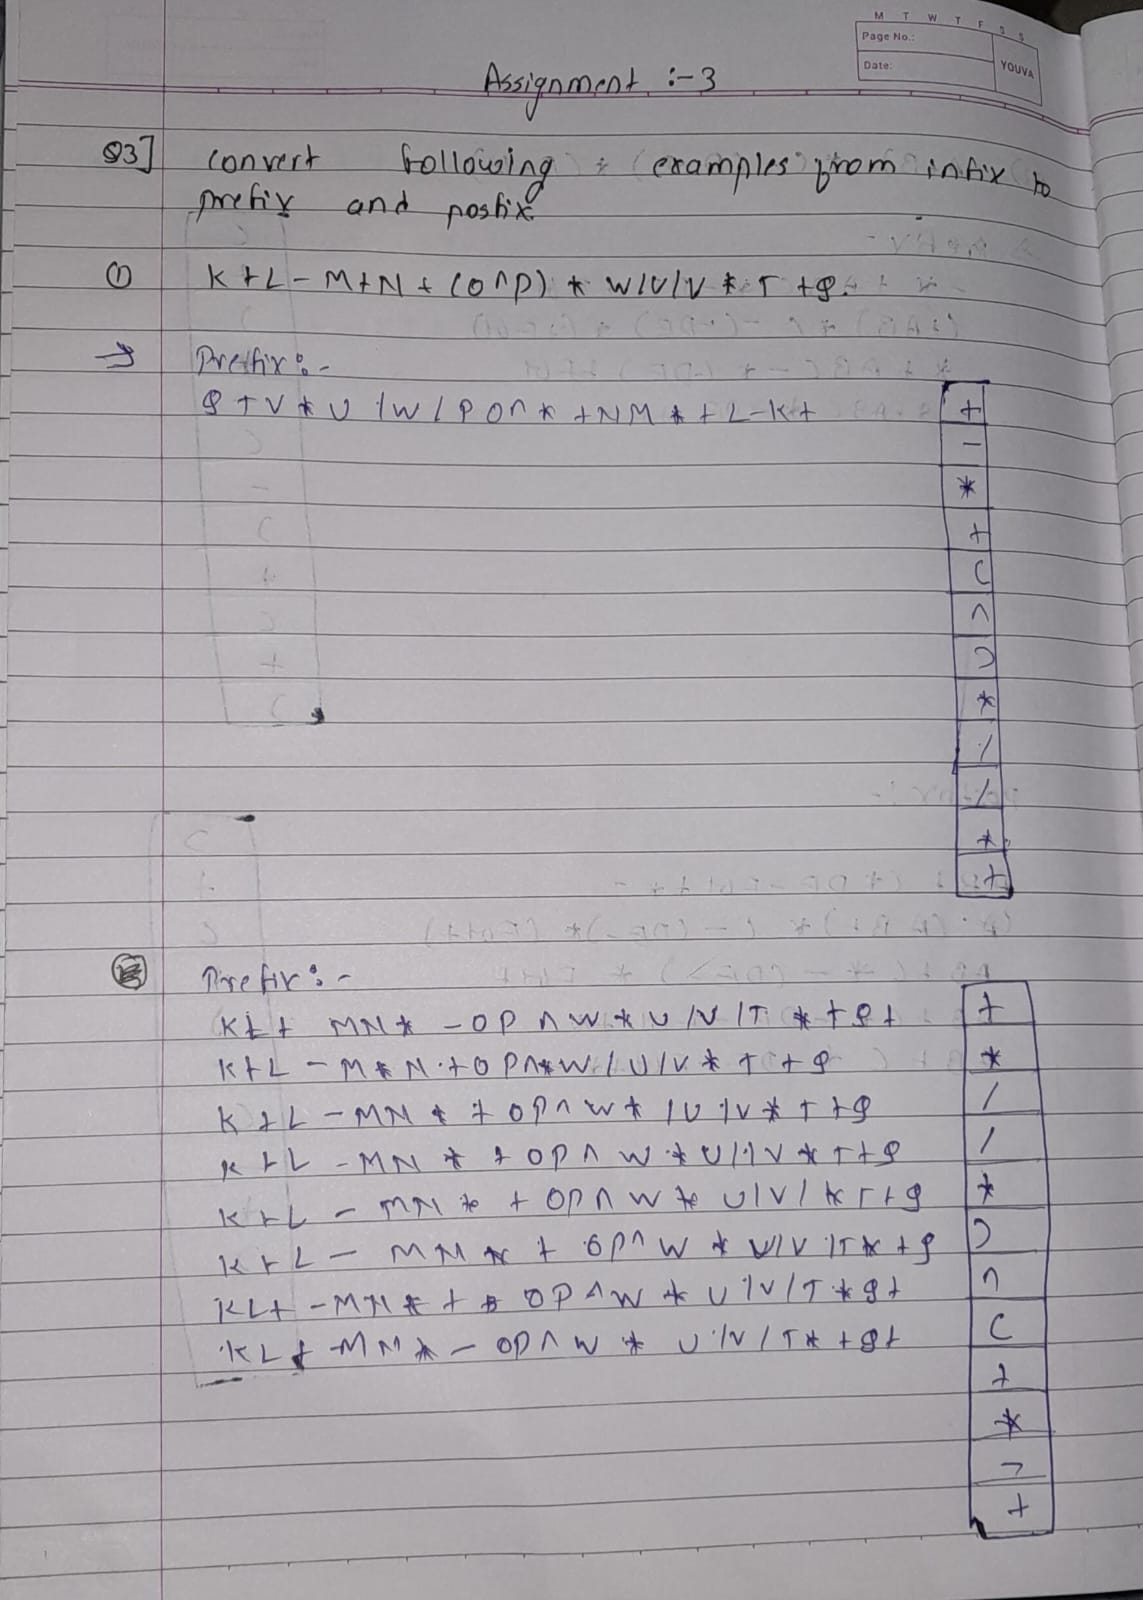 M T W T F S S
Page No.:
Date:
YOUVA
Assignment :- 3
Q3] convert following examples from infix to
prefix and posfix
① K+L-M+N+(O^P) * W/U/V * T +Q.
→ Prefix:-
Q+V*U/W/PO^*+NM*+L-K+
+
-
*
+
(
^
)
*
/
/
*
+
Prefix:-
KL+ MN* -OP^W*U/V/T*+Q+
K+L-M*N+OP^*W/U/V*T+Q
K+L-MN*+OP^W*/U/V*T+Q
K+L-MN*+OP^W*U//V*T+Q
K+L-MN*+OP^W*U/V/*T+Q
K+L-MN*+OP^W*U/V/T*+Q
KL+-MN*+*OP^W*U/V/T*Q+
KL+-MN*-OP^W*U/V/T*+Q+
+
*
/
/
*
)
^
(
+
*
-
+